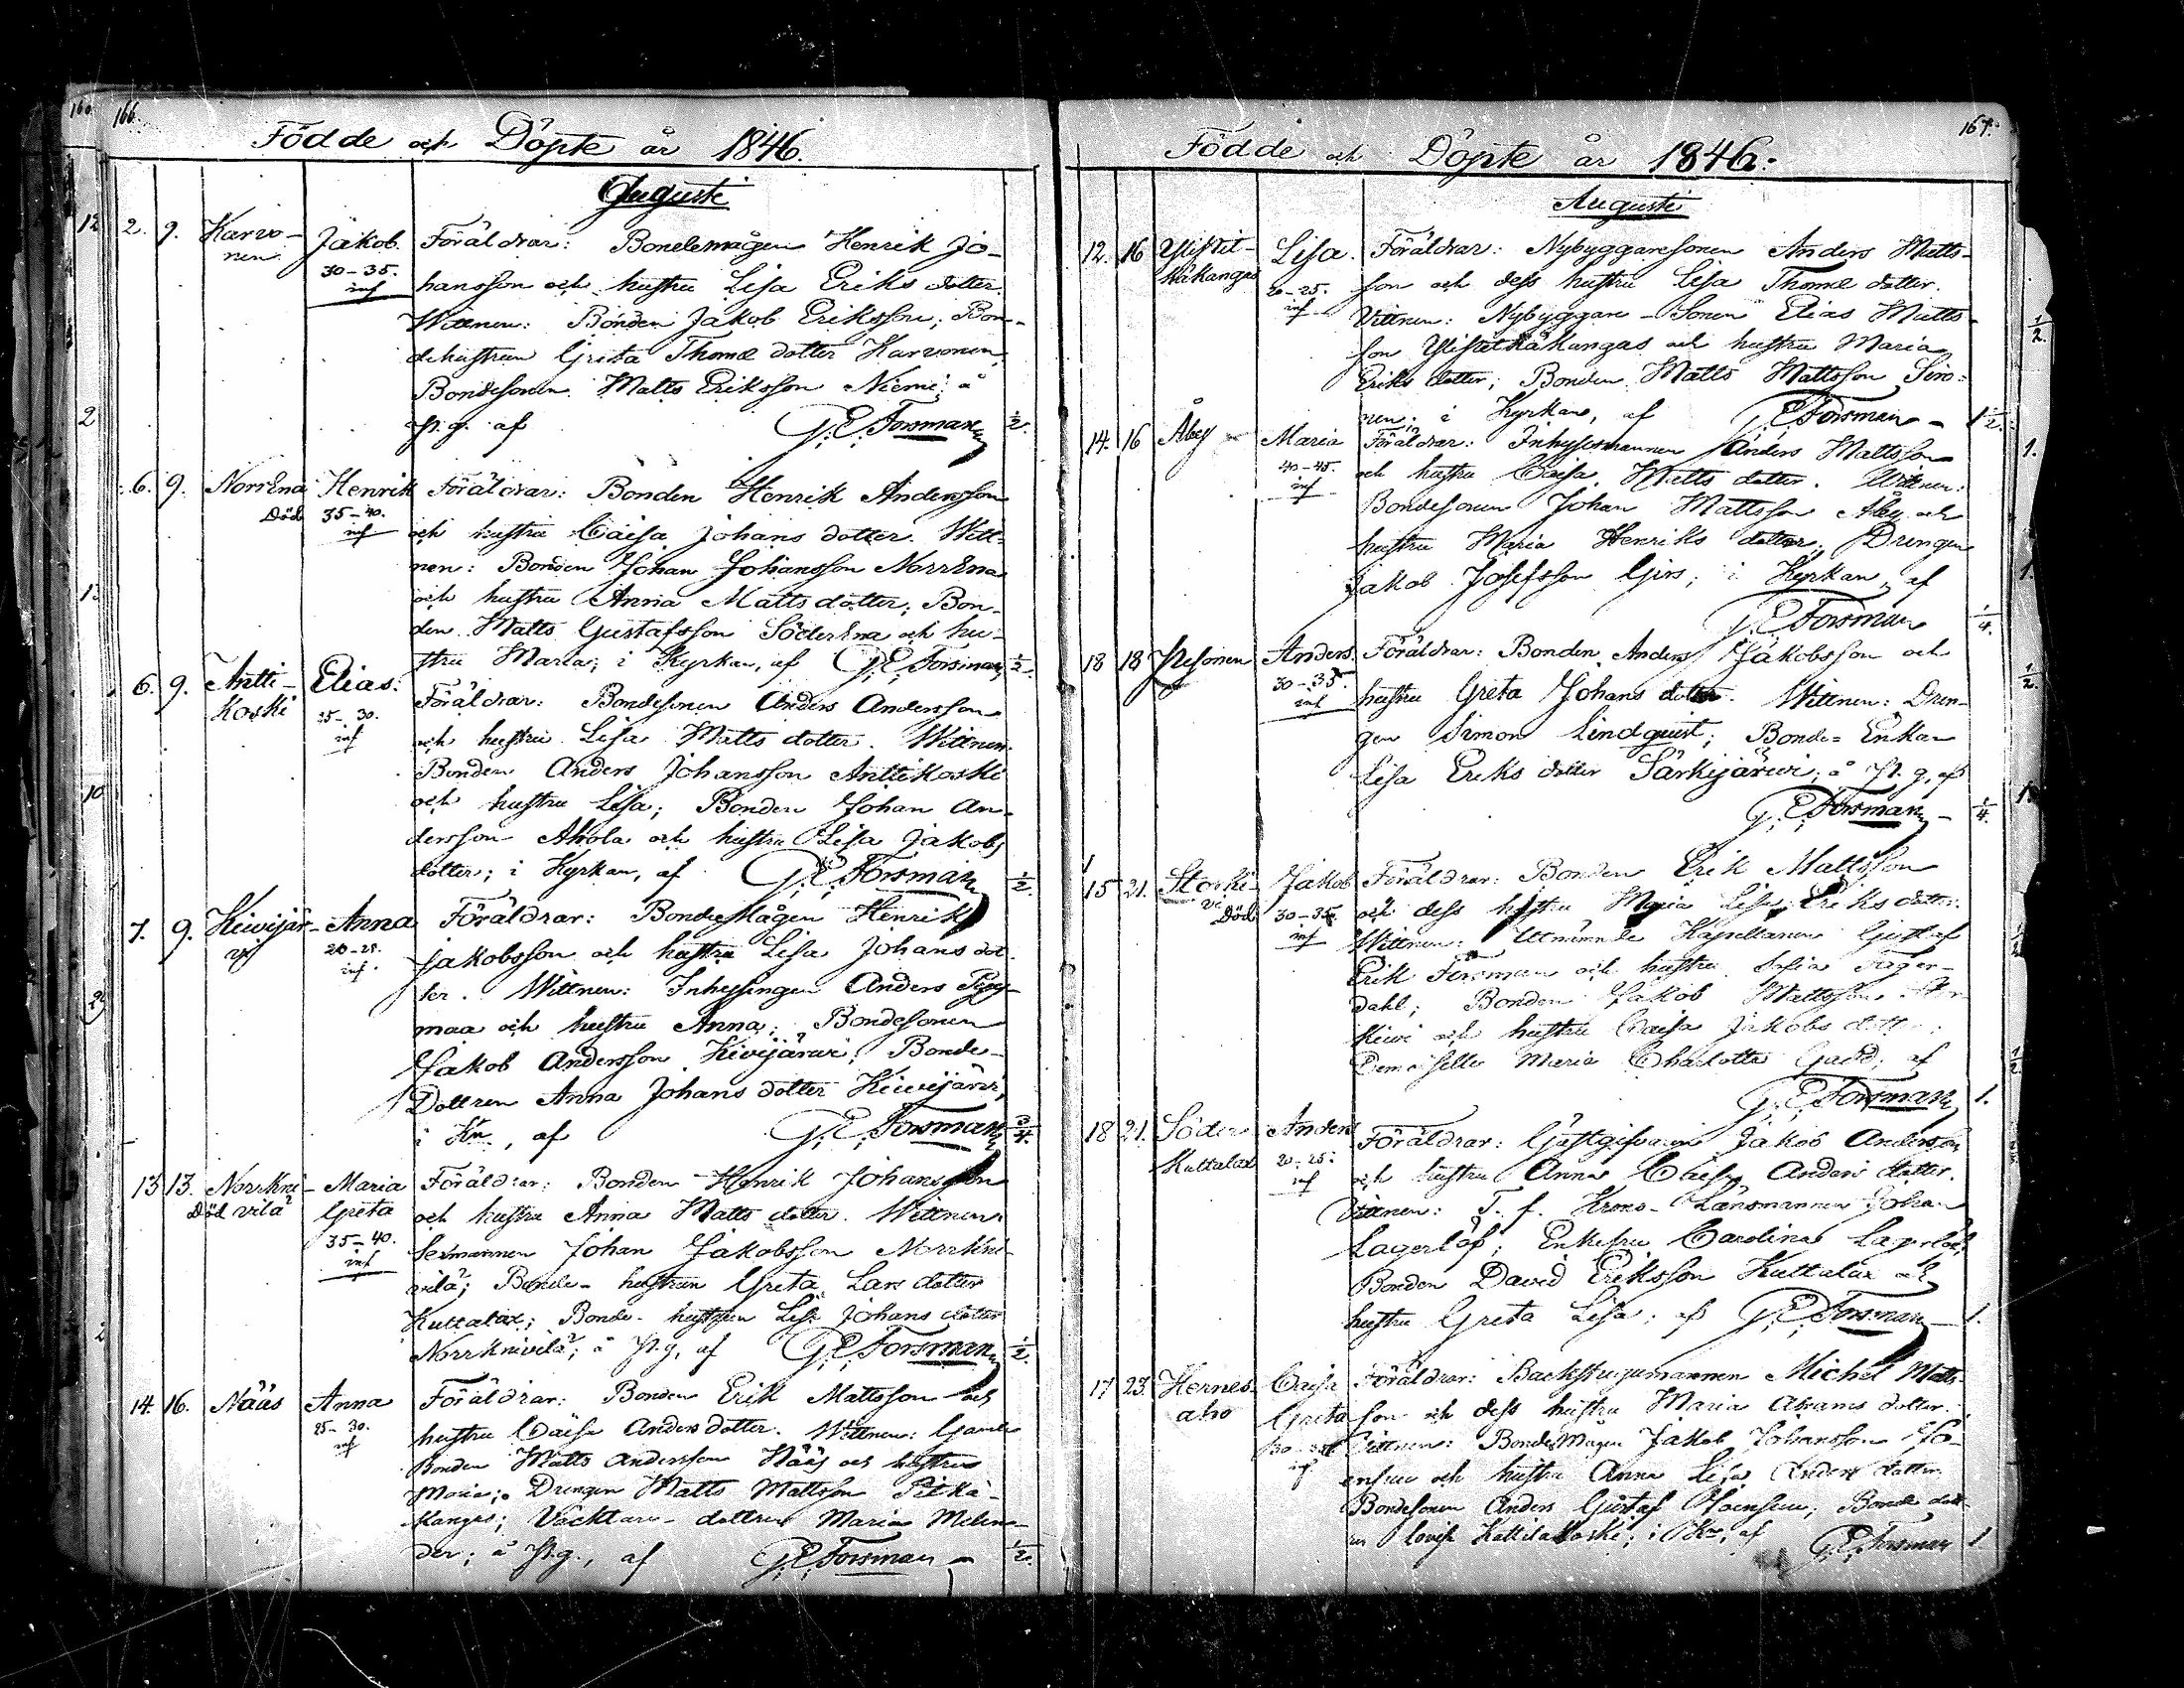 166.
Födde och Döpte år 1846.
Augusti
2. 9. Karvo- Jakob. Föräldrar: Bondemågen Henrik Jo-
nen 30-35. hansson och hustru Lisa Eriks dotter.
inf Wittnen: Bonden Jakob Eriksson; Bon-
dehustrun Greta Thomæ dotter Karvonen,
Bondesonen Matts Eriksson Niemi; å
p.g. af G. E. Forsman 1/2.
6. 9. Norrena Henrik Föräldrar: Bonden Henrik Andersson
Död 35-40. och hustru Caisa Johans dotter. Witt-
inf nen: Bonden Johan Johansson Norrena
och hustru Anna Matts dotter; Bon-
den Matts Gustafsson Söderena och hu-
stru Maria; i Kyrkan, af G. E. Forsman 1/2.
6. 9. Antti- Elias. Föräldrar: Bondesonen Anders Andersson
koski 25-30. och hustru Lisa Matts dotter. Wittnen:
inf Bonden Anders Johansson Anttikoski
och hustru Lisa; Bonden Johan An-
dersson Ahola och hustru Lisa Jakobs
dotter; i Kyrkan, af G. E. Forsman 1/2.
7. 9. Kiwijär- Anna Föräldrar: Bondemågen Henrik
vi 20-25. Jakobsson och hustru Lisa Johans dot-
inf. ter. Wittnen: Inhysingen Anders
maa och hustru Anna; Bondesonen
Jakob Andersson Kivijärwi; Bonde-
Dottren Anna Johans dotter Kiwijärvi,
i Kn., af G. E. Forsman 3/4.
13 13. Norrkni- Maria Föräldrar: Bonden Henrik Johansson
Död vilä Greta och hustru Anna Matts dotter. Wittnen:
35-40. Sexmannen Johan Jakobsson Norrkni-
inf vilä; Bonde-hustrun Greta Lars dotter
Kuttalax; Bonde-hustrun Lisa Johans dotter
Norrknivilä; å p.g, af G. E. Forsman 1/2.
14. 16. Nääs Anna Föräldrar: Bonden Erik Mattsson och
25-30. hustru Caisa Anders dotter. Wittnen: Gamle
inf Bonden Matts Andersson Nääs och hustru
Maria; Drengen Matts Mattsson Pitkä-
kangas; Väcktare-dottren Maria Melen-
der; å p.g., af G. E. Forsman 1/2.
167.
Födde och Döpte år 1846.
Augusti
12. 16 Lisa. Föräldrar: Nybyggaresonen Anders Matts-
kåkangas 20-25. son och dess hustru Lisa Thomæ dotter.
inf Vittnen: Nybyggare-Sonen Elias Matts-
son och hustru Maria
Eriks dotter; Bonden Matts Mattsson Siro-
nen; i Kyrkan, af G. E. Forsman 1/2.
14. 16 Åby Maria Föräldrar: Inhysesmannen Anders Mattsson
40-45. och hustru Caisa Matts dotter. Wittnen:
inf Bondesonen Johan Mattsson Åby och
hustru Maria Henriks dotter; Drengen
Jakob Josefsson Girs; i Kyrkan, af
G. E. Forsman 1/4.
18 18 Pesonen Anders. Föräldrar: Bonden Anders Jakobsson och
30-35. hustru Greta Johans dotter. Wittnen: Dren-
inf gen Simon Lindquist; Bonde-Enkan
Lisa Eriks dotter Särkijärwi; å p.g, af
G. E. Forsman 1/4.
15 21. Storki- Jakob Föräldrar: Bonden Erik Mattsson
vi Död 30-35. och dess hustru Maria Lisa Eriks dotter.
inf Wittnen: Utnämnde Kapellanen Gustaf
Erik Forsman och hustru Sofia Fager-
dahl; Bonden Jakob Mattsson Stor-
kiwi och hustru Caisa Jakobs dotter;
Demoiselle Maria Charlotta Gadd; af
G. E. Forsman 1.
18 21. Söder Anders Föräldrar: Gästgifvaren Jakob Andersson
Kuttalax 20-25. och hustru Anna Caisa Anders dotter.
inf Vittnen: T. f. Krono-Länsmannen Johan
Lagerlöf; Enkefru Carolina Lagerlöf;
Bonden David Eriksson Kuttalax och
hustru Greta Lisa; af G. E. Forsman 1.
17 23. Hernes- Caisa Föräldrar: Backstugumannen Michel Matts-
aho Greta son och dess hustru Maria Abrams dotter.
30-35 Vittnen: Bondemågen Jakob Johansson Jo-
inf ensuu och hustru Anna Lisa Anders dotter;
Bondesonen Anders Gustaf Joensuu; Bonde dott-
ren Lovisa Kattilakoski; i Kn, af G. E. Forsman 1